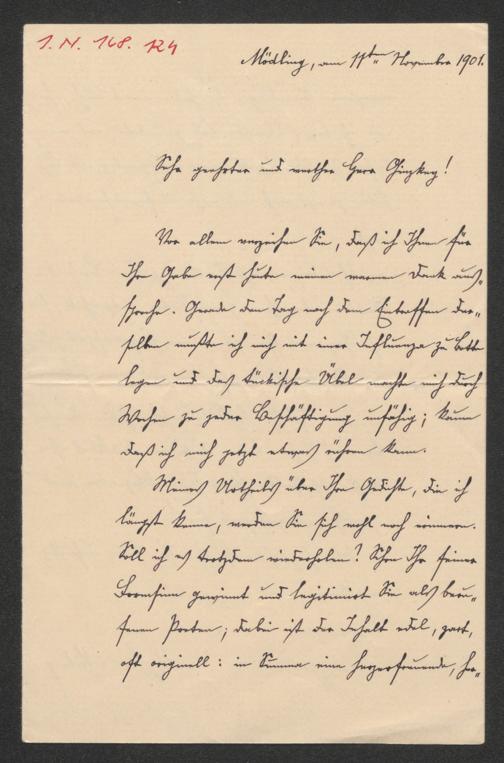 I. N. 168.124
Mödling, am 11ten November 1901.
Sehr geehrter und werther Herr Ginzkey!
Vor allem verzeihen Sie, daß ich Ihnen für
Ihre Gabe erst heute meinen warmen Dank aus-
spreche. Gerade den Tag nach dem Eintreffen der-
selben mußte ich mich mit einer Influenza zu Bette
legen und das tückische Übel machte mich durch
Wochen zu jeder Beschäftigung unfähig; kaum
daß ich mich jetzt etwas rühren kann.
Meines Urtheils über Ihre Gedichte, die ich
längst kenne, werden Sie sich wohl noch erinnern.
Soll ich es trotzdem wiederholen? Schon Ihr feiner
Formsinn gewinnt und legitimirt Sie als beru-
fenen Poeten; dabei ist der Inhalt edel, zart,
oft originell: in Summa eine herzerfreuende, her-